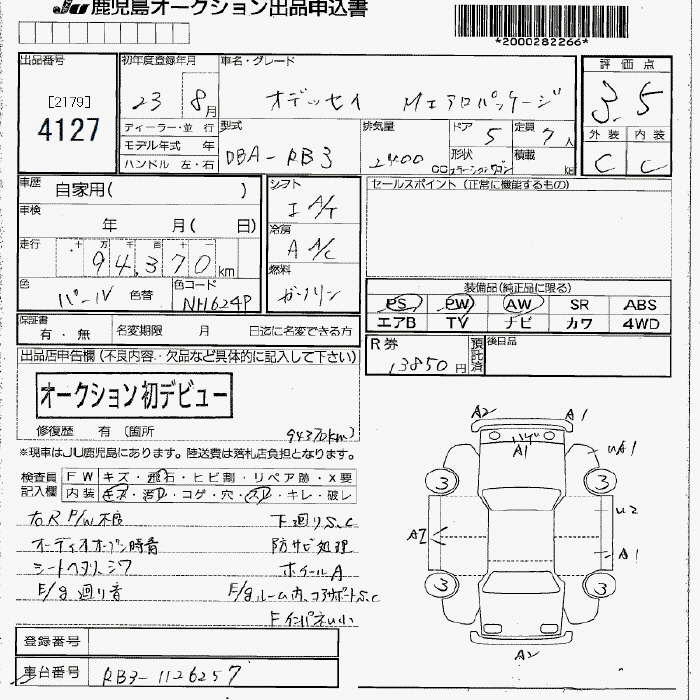 JU 鹿児島オークション出品申込書
*2000282266*
出品番号
[2179]
4127
初年度登録年月
23 8月
車名・グレード
オデッセイ Mエアロパッケージ
評価点
3.5
外装 内装
C C
ディーラー・並行
モデル年式 年
ハンドル 左・右
型式
DBA-RB3
排気量
2400
CC
ドア
5
形状
ステーションワゴン
定員
7人
積載
kg
車歴
自家用( )
車検
年 月( 日)
走行
十 万 千 百 十 一
94,370km
色
パール 色替
色コード
NH624P
シフト
I A/T
冷房
A A/C
燃料
ガソリン
セールスポイント(正常に機能するもの)
装備品(純正品に限る)
PS PW AW SR ABS
エアB TV ナビ カワ 4WD
保証書
有・無
名変期限 月 日迄に名変できる方
R券
13850円
預託済
後日品
出品店申告欄(不良内容・欠品など具体的に記入して下さい)
オークション初デビュー
修復歴 有 (箇所
94370km)
※現車はJU鹿児島にあります。陸送費は落札店負担となります。
検査員記入欄
FW キズ・飛石・ヒビ割・リペア跡・X要
内装 キズ・汚れ・コゲ・穴・スレ・キレ・破レ
右R P/W不良 下廻りS.C
オーディオオープン時音 防サビ処理
シートヘタリ、シワ ホイールA
E/g廻り音 E/gルーム内、コアサポートS.C
Fインパネキズ小
登録番号
車台番号
RB3-1126257
A2 A1
A1
UA1
3 3
U2
A2
A1
3 3
A2